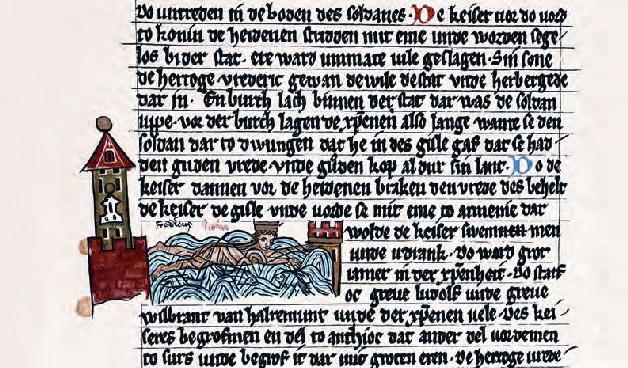 Do untreden in de boden des soldanes. De keiser vor do vord
to konin de heidenen stridden mit eme unde worden sege
los bi der stat. ere ward unmate vile geslagen. Sin sone
de hertoge vrederic gewan de wile de stat unde herbergede
dar in. En burch lach binnen der stat dar was de soldan
uppe. vor der burch lagen de xpenen also lange wante se den
soldan dar to dwungen dat he in des gisle gaf dat se had
den guden vrede. unde guden kop al dur sin lant. Do de
keiser dannen vor de heidenen braken den vrede des behelt
de keiser de gisle unde vorde se mit eme to armenie dar
wolde de keiser swemmen
unde udrank. Do ward grot
iamer in der xpenheit. Do starf
oc greve ludolf unde greve
wilbrant van halremunt unde der xpenen vele. Des kei
seres begrof men en del to anthioc dat ander del vordemen
to surs unde begrof it dar mit groten eren. De hertoge vrede